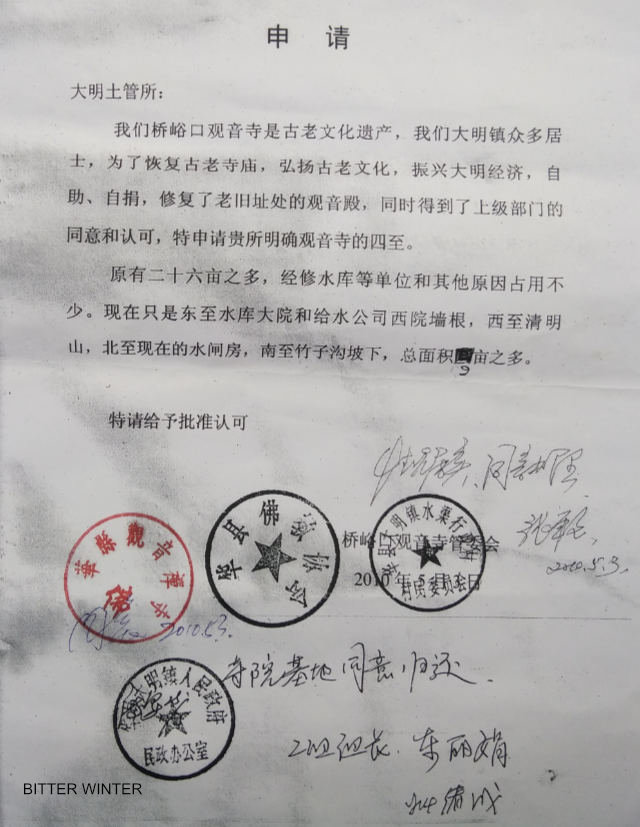 申 请
大明土管所：
我们桥峪口观音寺是古老文化遗产，我们大明镇众多居
士，为了恢复古老寺庙，弘扬古老文化，振兴大明经济，自
助、自捐，修复了老旧址处的观音殿，同时得到了上级部门的
同意和认可，特申请贵所明确观音寺的四至。
原有二十六亩之多，经修水库等单位和其他原因占用不
少。现在只是东至水库大院和给水公司西院墙根，西至清明
山，北至现在的水闸房，南至竹子沟坡下，总面积9亩之多。
特请给予批准认可
同意
2010.5.3.
桥峪口观音寺管委会
2010年5月 日
華縣觀音禪寺
佛
华县佛教协会
大明镇水渠行
村民委员会
2010.5.3.
寺院基地同意归还.
大明镇人民政府
民政办公室
二组组长.东丽娟
BITTER WINTER